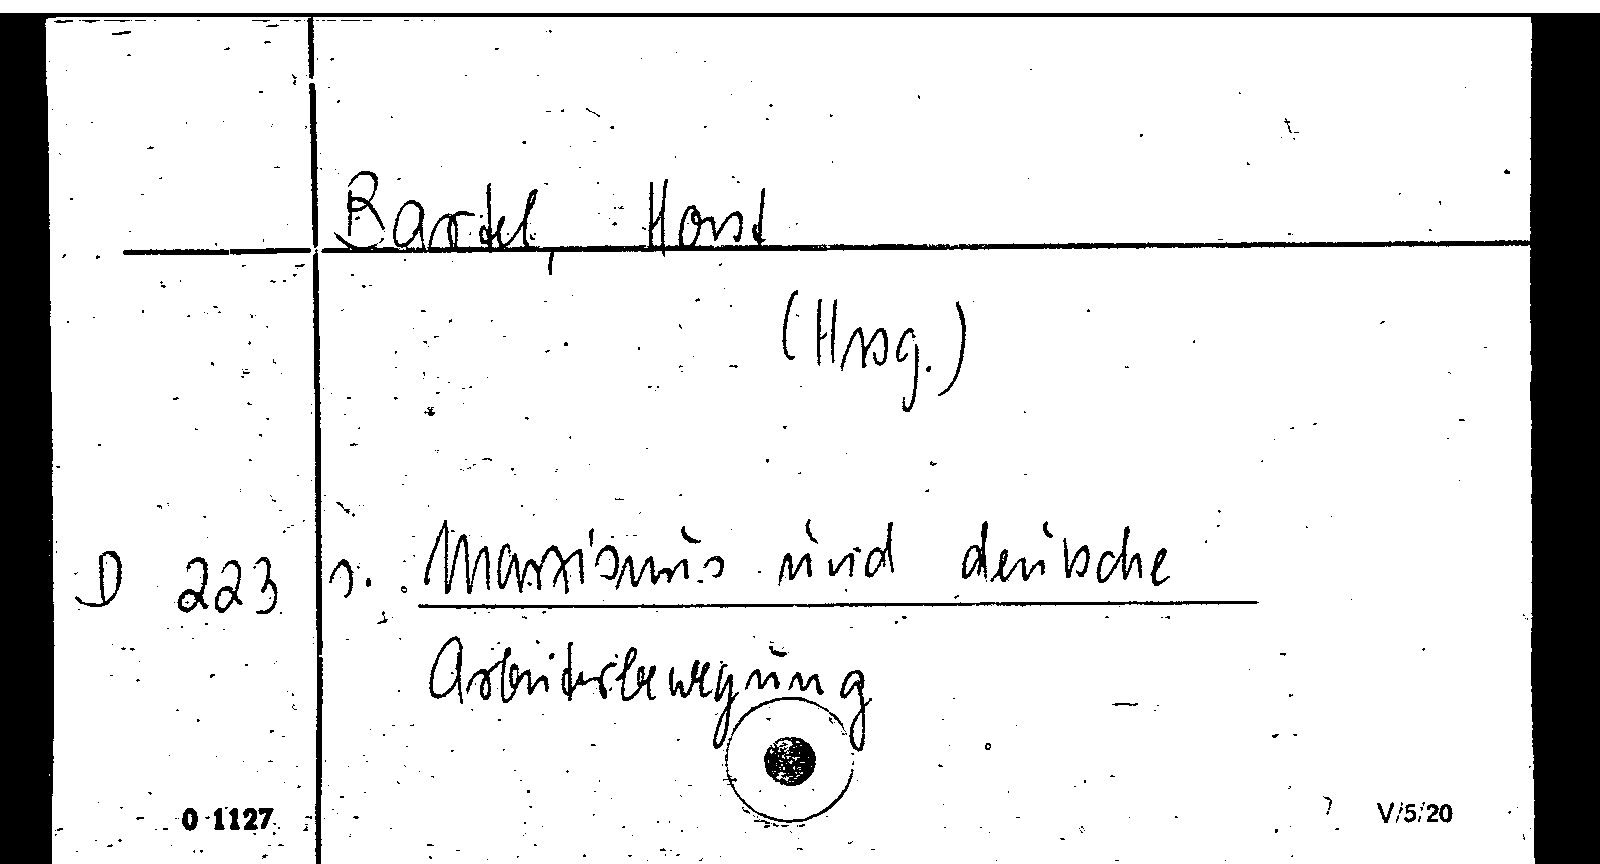 Bartel, Horst
(Hrsg.)
D 223 s. Marxismus und deutsche
Arbeiterbewegung
0 1127 V/5/20